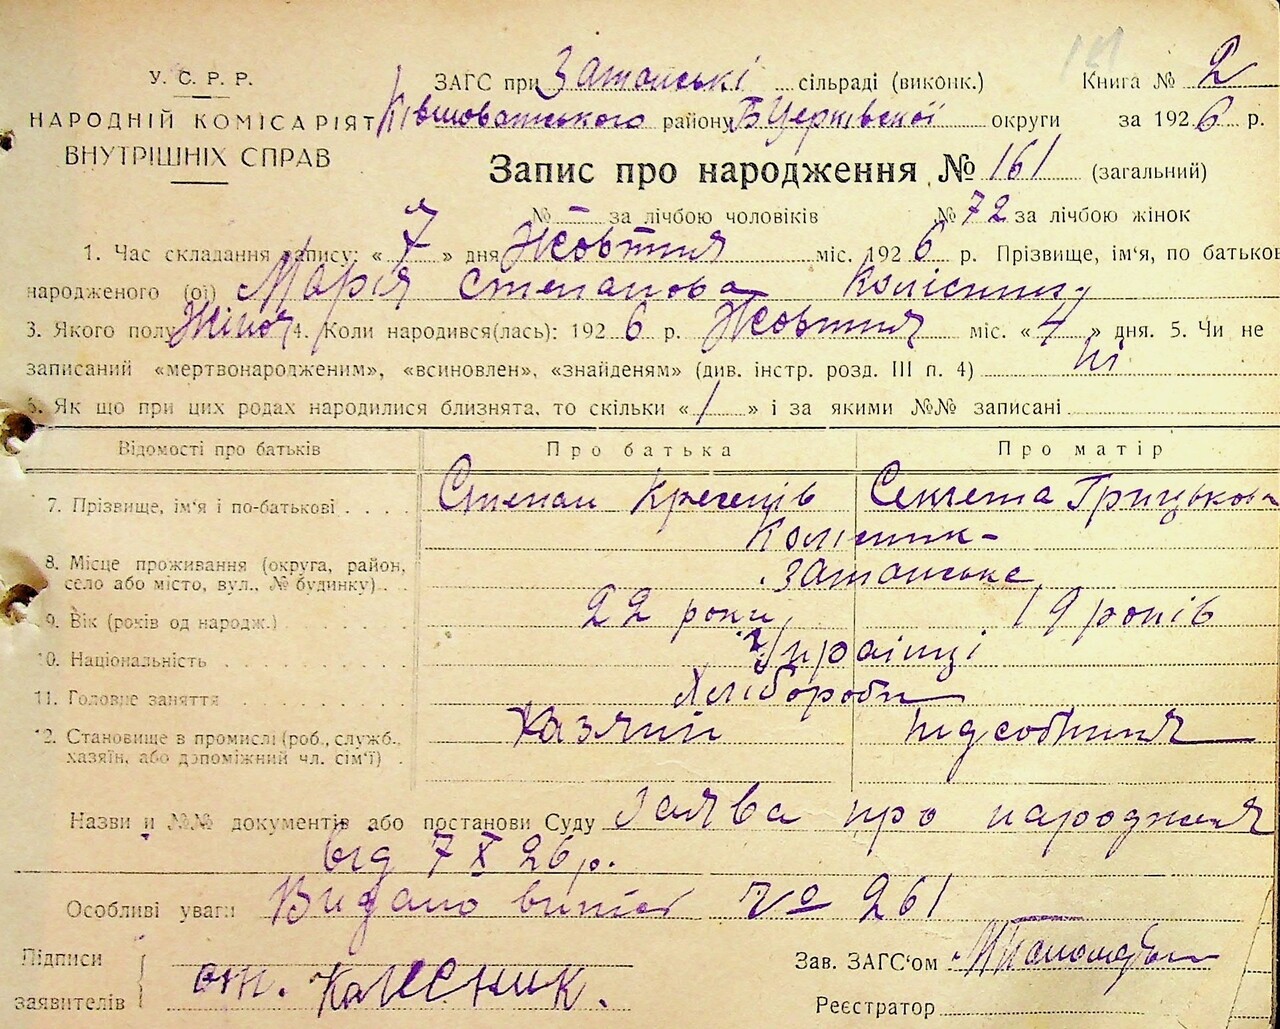 161
У. С. Р. Р.
НАРОДНІЙ КОМІСАРІЯТ
ВНУТРІШНІХ СПРАВ
ЗАГС при Затонські сільраді (виконк.) Книга № 2
Ківшоватського району БЦерківської округи за 1926 р.
Запис про народження № 161 (загальний)
№ за лічбою чоловіків № 72 за лічбою жінок
1. Час складання запису: « 7 » дня Жовтня міс. 1926 р. Прізвище, ім'я, по батьков
народженого (ої) Марія Степанова Колісник
3. Якого полу Жіноч 4. Коли народився(лась): 1926 р. Жовтня міс. « 4 » дня. 5. Чи не
записаний «мертвонародженим», «всиновлен», «знайденям» (див. інстр. розд. III п. 4) ні
6. Як що при цих родах народилися близнята, то скільки « 1 » і за якими №№ записані
Відомості про батьків Про батька Про матір
7. Прізвище, ім'я і по-батькові Степан Секлета Грицькова
Колісник-
8. Місце проживання (округа, район,
село або місто, вул., № будинку) Затонське
9. Вік (років од народж.) 22 роки 19 років
10. Національність Українці
11. Головне заняття Хлібороби
12. Становище в промислі (роб., служб., Хазяїн підсобниця
хазяїн, або допоміжний чл. сім'ї)
Назви и №№ документів або постанови Суду Заява про народження
від 7 X 26 р.
Особливі уваги Видано витяг № 261
Підписи
заявителів ст. Колесник.
Зав. ЗАГС'ом
Реєстратор